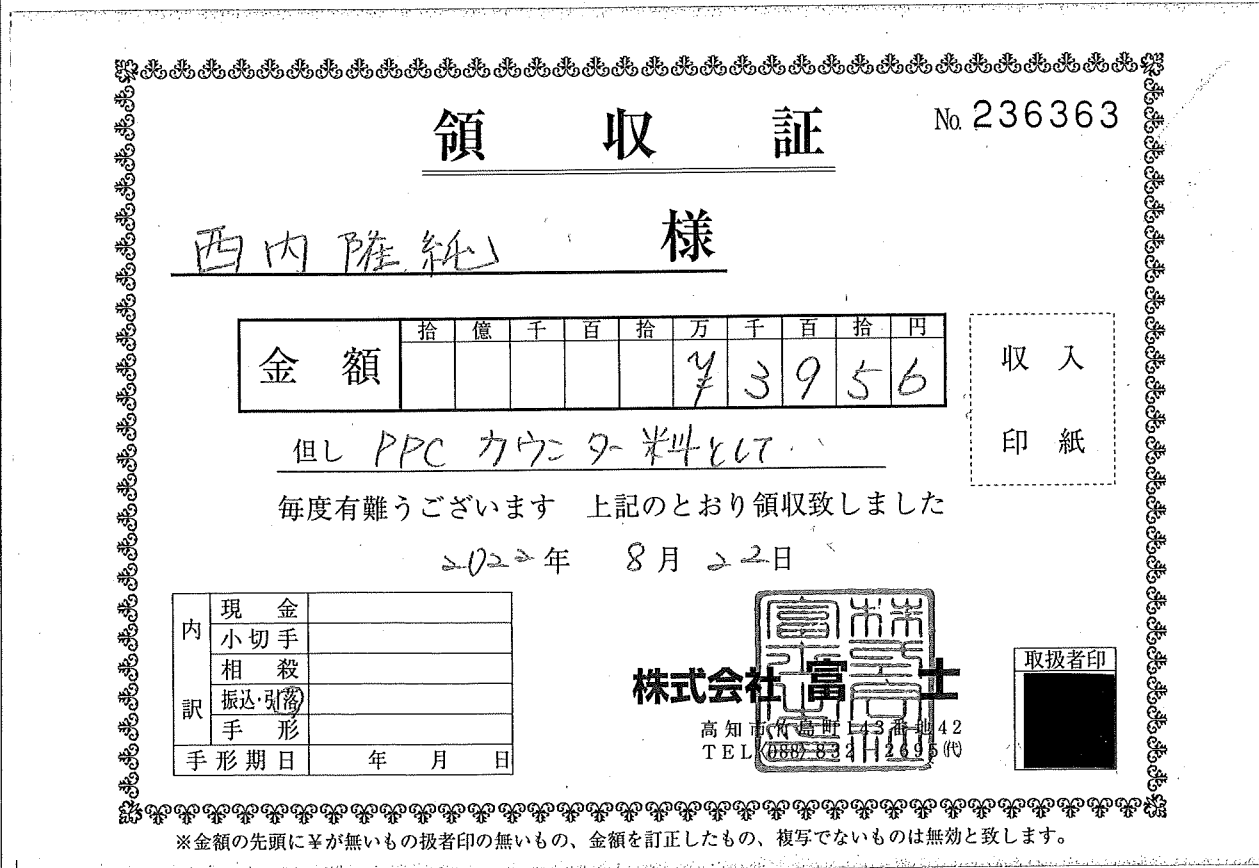 領収証
No. 236363
西内隆純 様
金額 拾 億 千 百 拾 万 千 百 拾 円
¥3956
収入
印紙
但し PPCカウンター料として
毎度有難うございます 上記のとおり領収致しました
2022年 8月 22日
内訳
現金
小切手
相殺
振込・引落
手形
手形期日 年 月 日
株式会社 富士
高知市竹島町143番地42
TEL〈088〉832-2695㈹
取扱者印
※金額の先頭に¥が無いもの扱者印の無いもの、金額を訂正したもの、複写でないものは無効と致します。